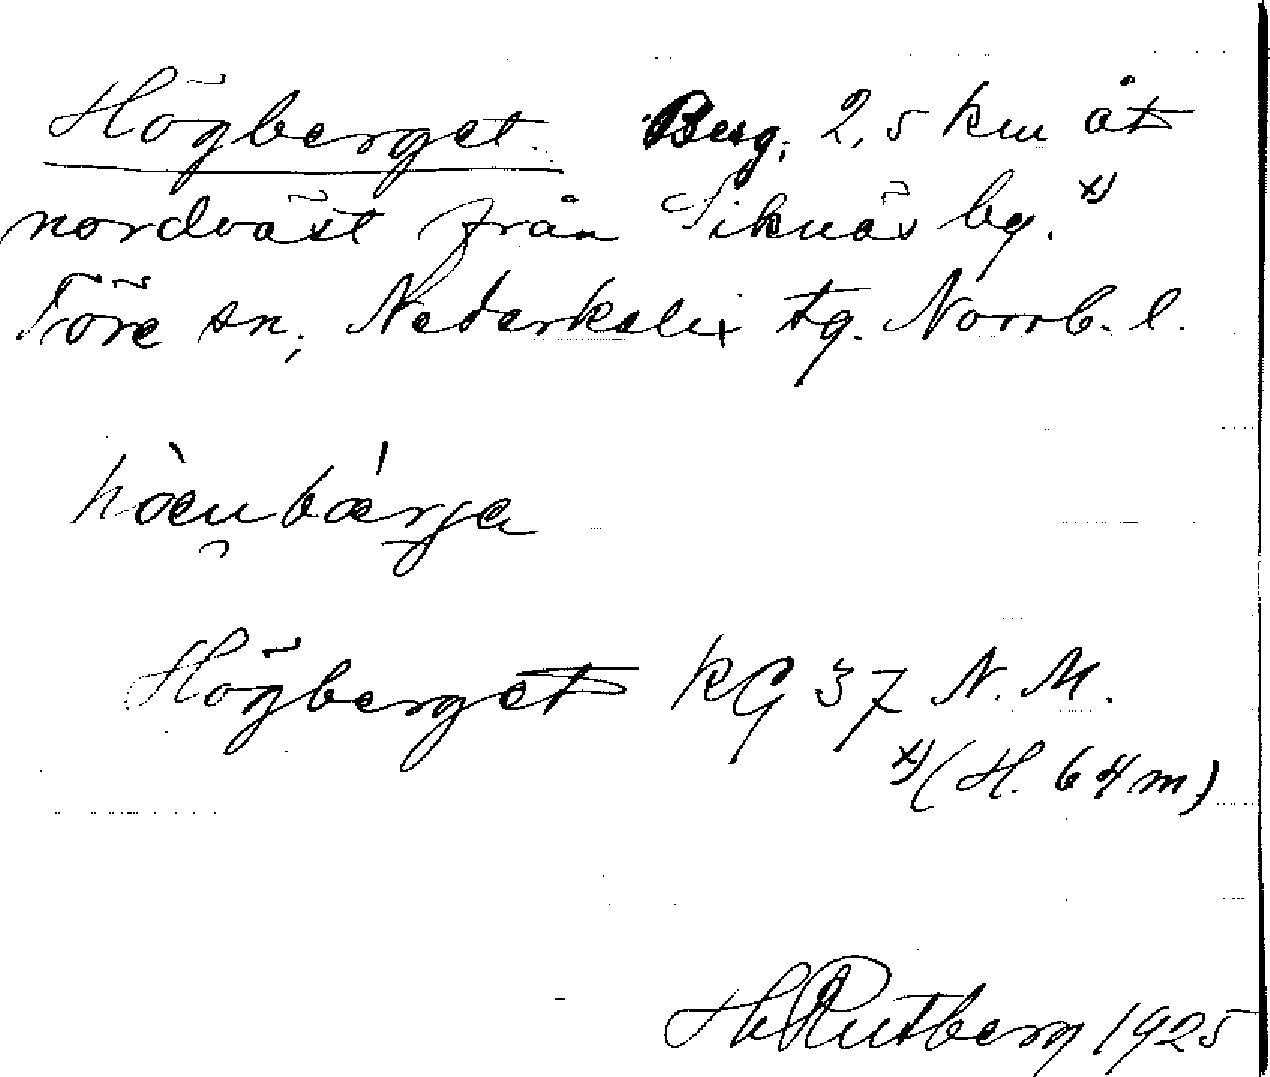 Högberget. Berg, 2,5 km åt
nordväst från Siknäs by. x)
Töre sn, Nederkalix tg. Norrb. l.
hòenbærja
Högberget KG 37 N. M.
x) (H. 64 m)
Rutberg 1925